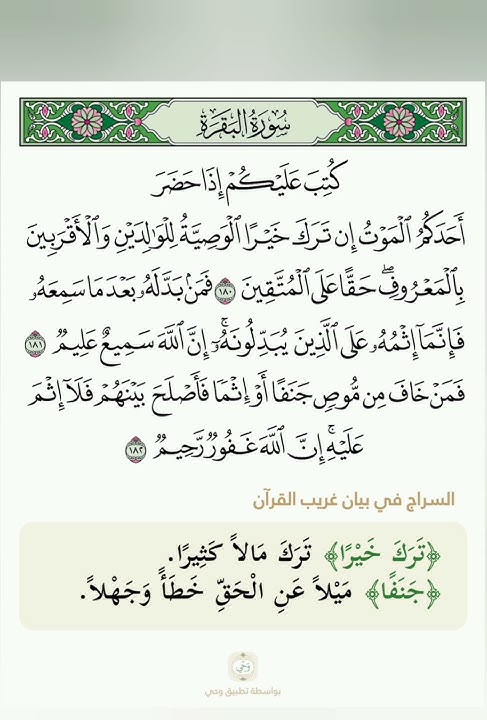 سُورَةُ الْبَقَرَةِ
كُتِبَ عَلَيْكُمْ إِذَا حَضَرَ
أَحَدَكُمُ ٱلْمَوْتُ إِن تَرَكَ خَيْرًا ٱلْوَصِيَّةُ لِلْوَٰلِدَيْنِ وَٱلْأَقْرَبِينَ
بِٱلْمَعْرُوفِۖ حَقًّا عَلَى ٱلْمُتَّقِينَ ١٨٠ فَمَنۢ بَدَّلَهُۥ بَعْدَ مَا سَمِعَهُۥ
فَإِنَّمَآ إِثْمُهُۥ عَلَى ٱلَّذِينَ يُبَدِّلُونَهُۥٓۚ إِنَّ ٱللَّهَ سَمِيعٌ عَلِيمٌ ١٨١
فَمَنْ خَافَ مِن مُّوصٍ جَنَفًا أَوْ إِثْمًا فَأَصْلَحَ بَيْنَهُمْ فَلَآ إِثْمَ
عَلَيْهِۚ إِنَّ ٱللَّهَ غَفُورٌ رَّحِيمٌ ١٨٢
السراج في بيان غريب القرآن
﴿تَرَكَ خَيْرًا﴾ تَرَكَ مَالاً كَثِيرًا.
﴿جَنَفًا﴾ مَيْلاً عَنِ الْحَقِّ خَطَأً وَجَهْلاً.
وحي
بواسطة تطبيق وحي